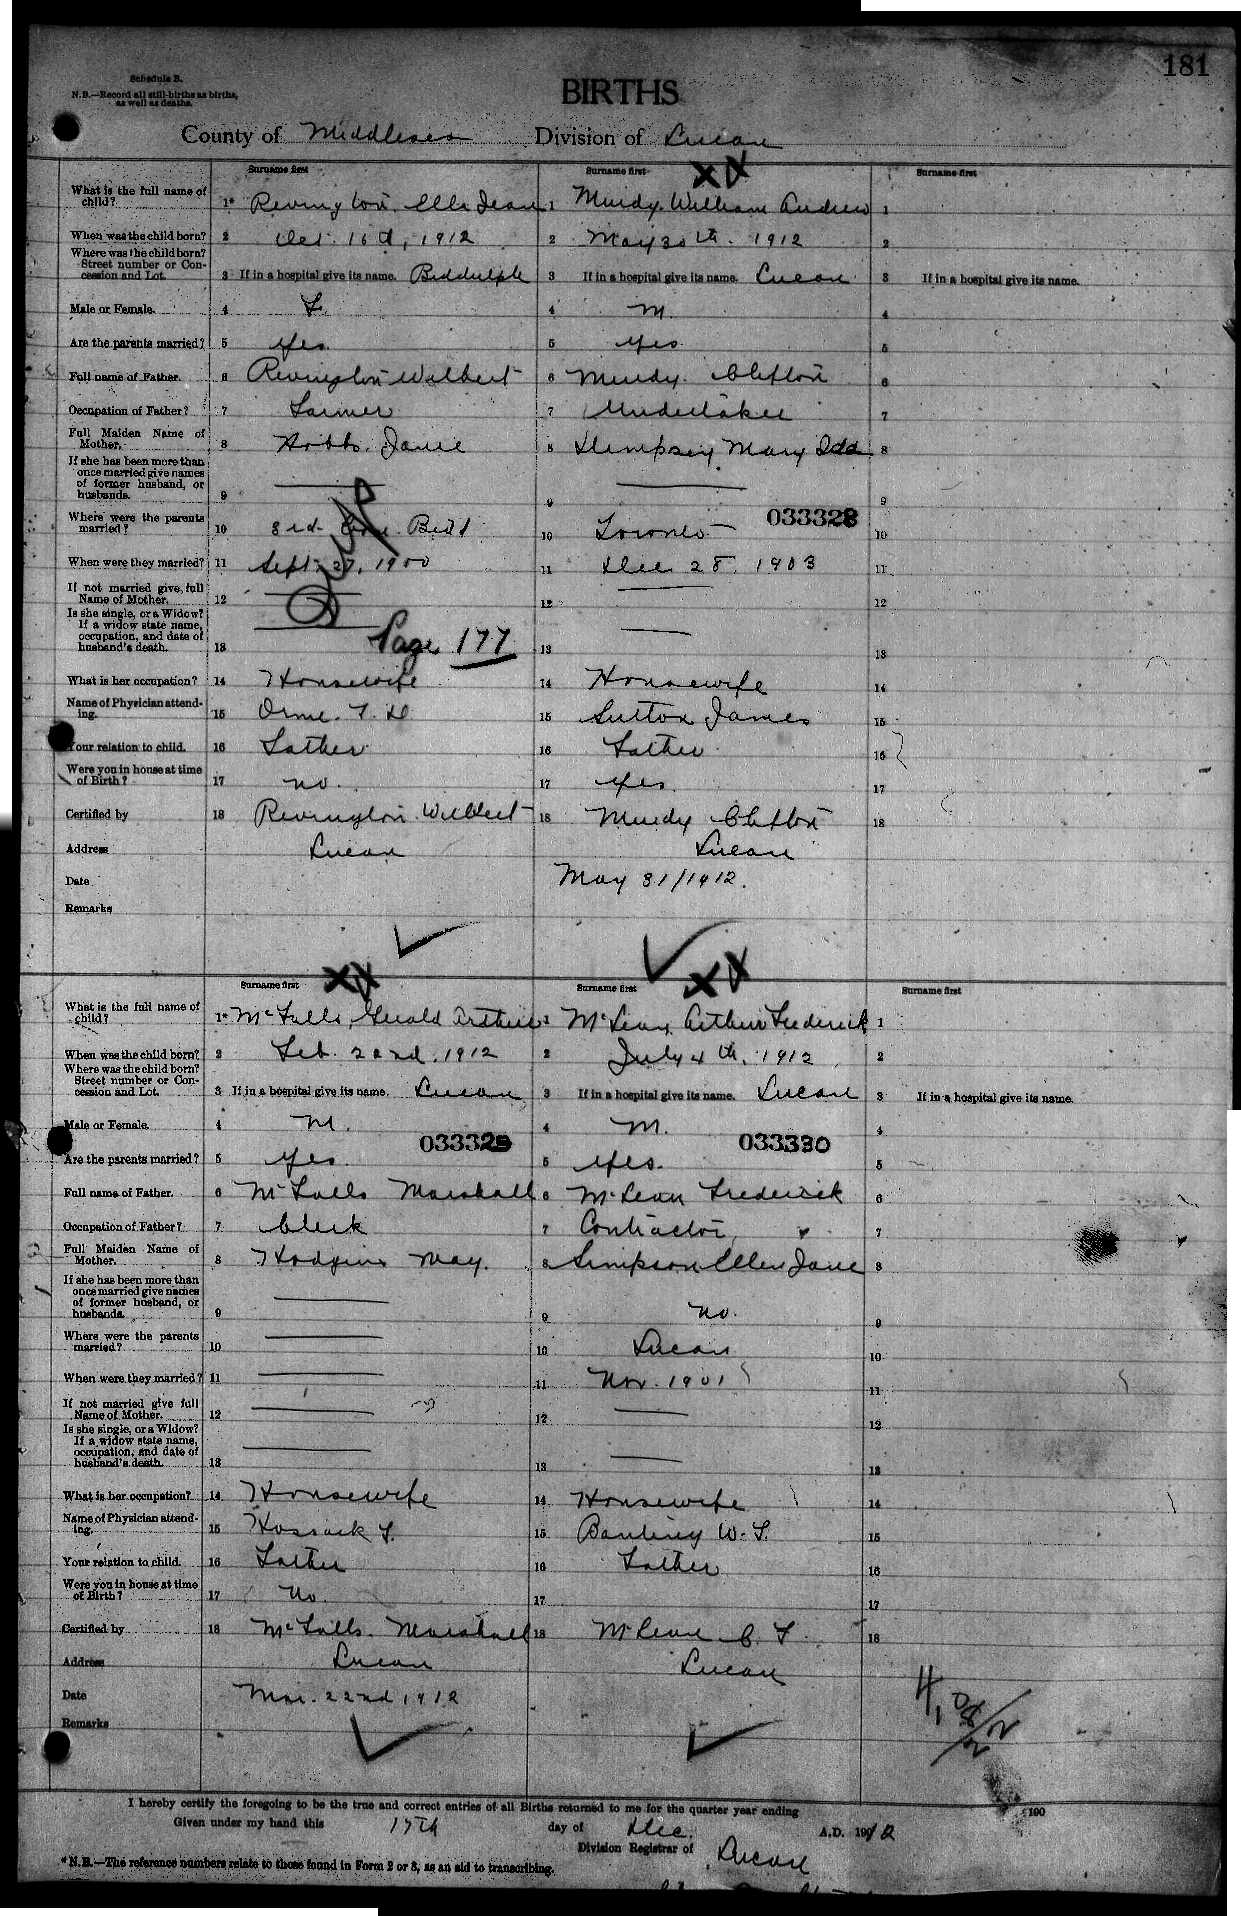 181
Schedule B.
N.B.—Record all still-births as births,
as well as deaths.
BIRTHS
County of Middlesex Division of Lucan
Surname first Surname first Surname first
What is the full name of child? 1* Revington, Ella Jean 1 Mundy, William Andrew 1
When was the child born? 2 Oct. 16th, 1912 2 May 30th. 1912 2
Where was the child born? Street number or Concession and Lot. 3 If in a hospital give its name. Biddulph 3 If in a hospital give its name. Lucan 3 If in a hospital give its name.
Male or Female. 4 F. 4 M. 4
Are the parents married? 5 Yes. 5 Yes 5
Full name of Father. 6 Revington Wilbert 6 Mundy. Clifton 6
Occupation of Father? 7 Farmer 7 Undertaker 7
Full Maiden Name of Mother. 8 Hobbs. Janie 8 Dempsey Mary Ida 8
If she has been more than once married give names of former husband, or husbands. 9 — 9 — 9
033328
Where were the parents married? 10 3rd Con. Bidd 10 Toronto 10
When were they married? 11 Sept. 27, 1900 11 Dec 28. 1903 11
If not married give full Name of Mother. 12 — 12 — 12
Dup
Is she single, or a Widow? If a widow state name, occupation, and date of husband's death. 13 — 13 — 13
Page 177
What is her occupation? 14 Housewife 14 Housewife 14
Name of Physician attending. 15 Orme. T. D 15 Sutton James 15
Your relation to child. 16 Father 16 Father 16
Were you in house at time of Birth? 17 no. 17 Yes. 17
Certified by 18 Revington Wilbert 18 Mundy Clifton 18
Address Lucan Lucan
Date May 31/1912.
Remarks
Surname first Surname first Surname first
What is the full name of child? 1* McFalls, Gerald Arthur 1 McLean, Arthur Frederick 1
When was the child born? 2 Feb. 22nd. 1912 2 July 4th, 1912 2
Where was the child born? Street number or Concession and Lot. 3 If in a hospital give its name. Lucan 3 If in a hospital give its name. Lucan 3 If in a hospital give its name.
Male or Female. 4 M. 4 M. 4
033329 033330
Are the parents married? 5 Yes. 5 Yes. 5
Full name of Father. 6 McFalls Marshall 6 McLean Frederick 6
Occupation of Father? 7 Clerk 7 Contractor 7
Full Maiden Name of Mother. 8 Hodgins May. 8 Simpson Ellen Jane 8
If she has been more than once married give names of former husband, or husbands. 9 — 9 no. 9
Where were the parents married? 10 — 10 Lucan 10
When were they married? 11 — 11 Nov. 1901 11
If not married give full Name of Mother. 12 — 12 — 12
Is she single, or a Widow? If a widow state name, occupation, and date of husband's death. 13 — 13 — 13
What is her occupation? 14 Housewife 14 Housewife 14
Name of Physician attending. 15 Hossack T. 15 Banting W. T. 15
Your relation to child. 16 Father 16 Father 16
Were you in house at time of Birth? 17 No. 17 17
Certified by 18 McFalls. Marshall 18 McLean C. F. 18
Address Lucan Lucan
Date Mar. 22nd 1912
Remarks
I hereby certify the foregoing to be the true and correct entries of all Births returned to me for the quarter year ending 190
Given under my hand this 17th day of Dec. A.D. 1912
Division Registrar of Lucan
*N.B.—The reference numbers relate to those found in Form 2 or 3, as an aid to transcribing.